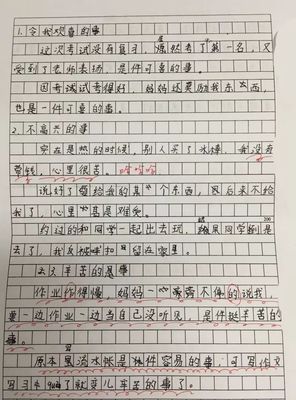 1.令我欢喜的事
这次考试没有复习,居然考了第一名,又
受到了老师表扬,是件可喜的事。
因考试试考得好,妈妈还奖励我东西,
也是一件可喜的事。
2.不高兴的事
实在是热的时候,别人买了冰棒,我没有
带钱,心里很苦。哈哈哈
说好了留给我的某个东西,因后来不给
我了,心里甚是难受。
约过的和同学一起出去玩,结果同学到是
去了,我反被留在家里。
200
3.辛苦的是事
作业作得慢,妈妈一旁不停的说我,
要一边作业一边当自己没听见,是件挺辛苦的
事。
原本是件容易的事,可写作文
写了就变儿辛苦的事了。